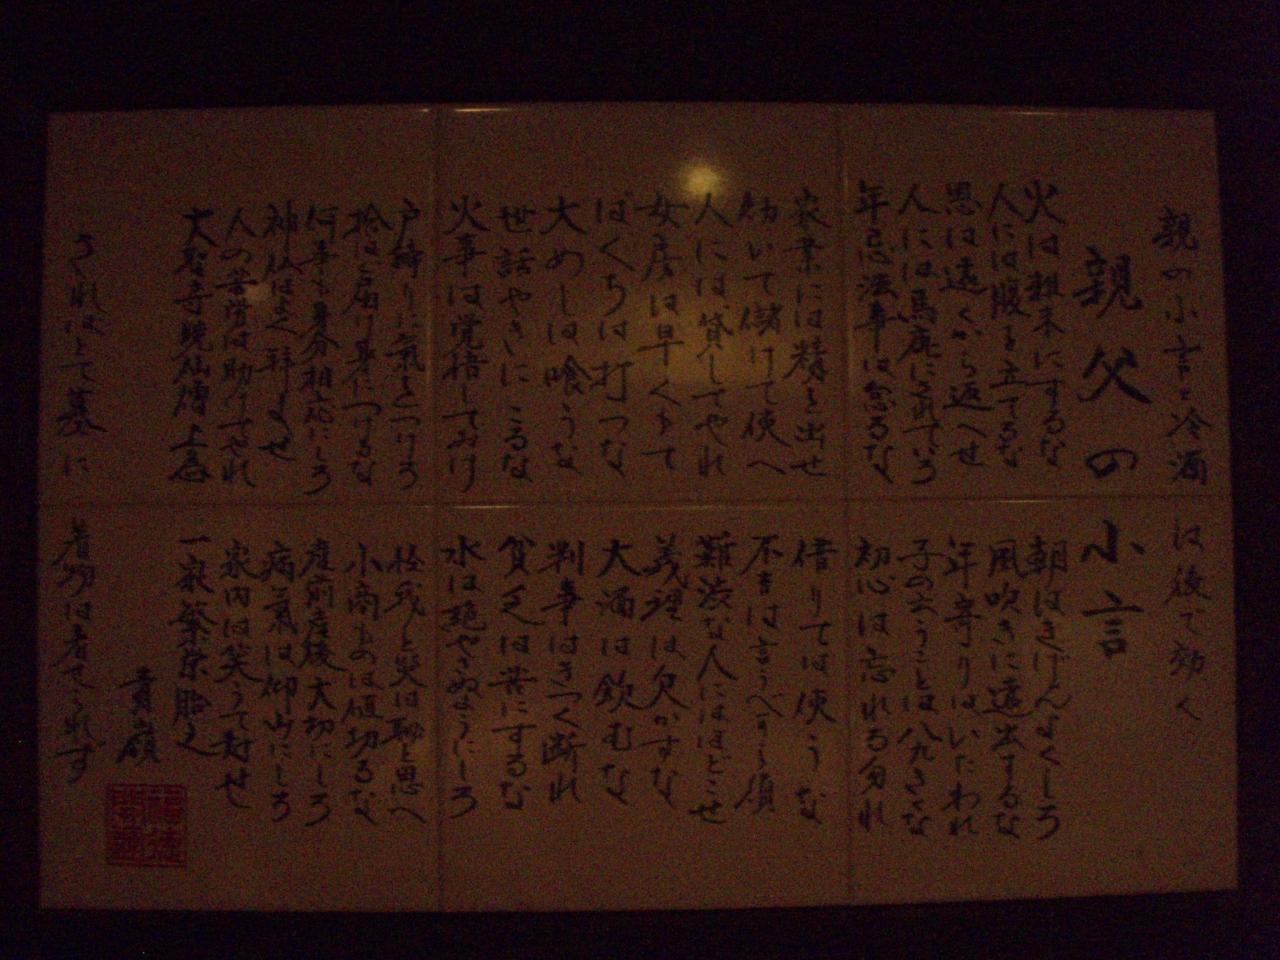 親の小言と冷酒は後で効く
親父の小言
火は粗末にするな
朝はきげんよくしろ
人には腹を立てるな
風吹きに遠出するな
恩は遠くから返へせ
年寄りはいたわれ
人には馬鹿にされていろ
子の云うことは八九きくな
年忌法事は怠るな
初心は忘れる勿れ
家業には精を出せ
借りては使うな
働いて儲けて使へ
不吉は言うべから須
人には貸してやれ
難渋な人にはほどこせ
女房は早くもて
義理は欠かすな
ばくちは打つな
大酒は飲むな
大めしは喰うな
判事はきつく断れ
世話やきにこるな
貧乏は苦にするな
火事は覚悟しておけ
水は絶やさぬようにしろ
戸締りに氣をつけろ
怪我と災は恥と思へ
拾はゞ届け身につけるな
小商もの値切るな
何事も身分相応にしろ
産前産後大切にしろ
神仏はよく拝ませ
病氣は仰山にしろ
人の苦労は助けてやれ
家内は笑うて暮せ
大聖寺暁仙僧上
一家繁栄
貴嶺
されはとて墓に着物は着せられず